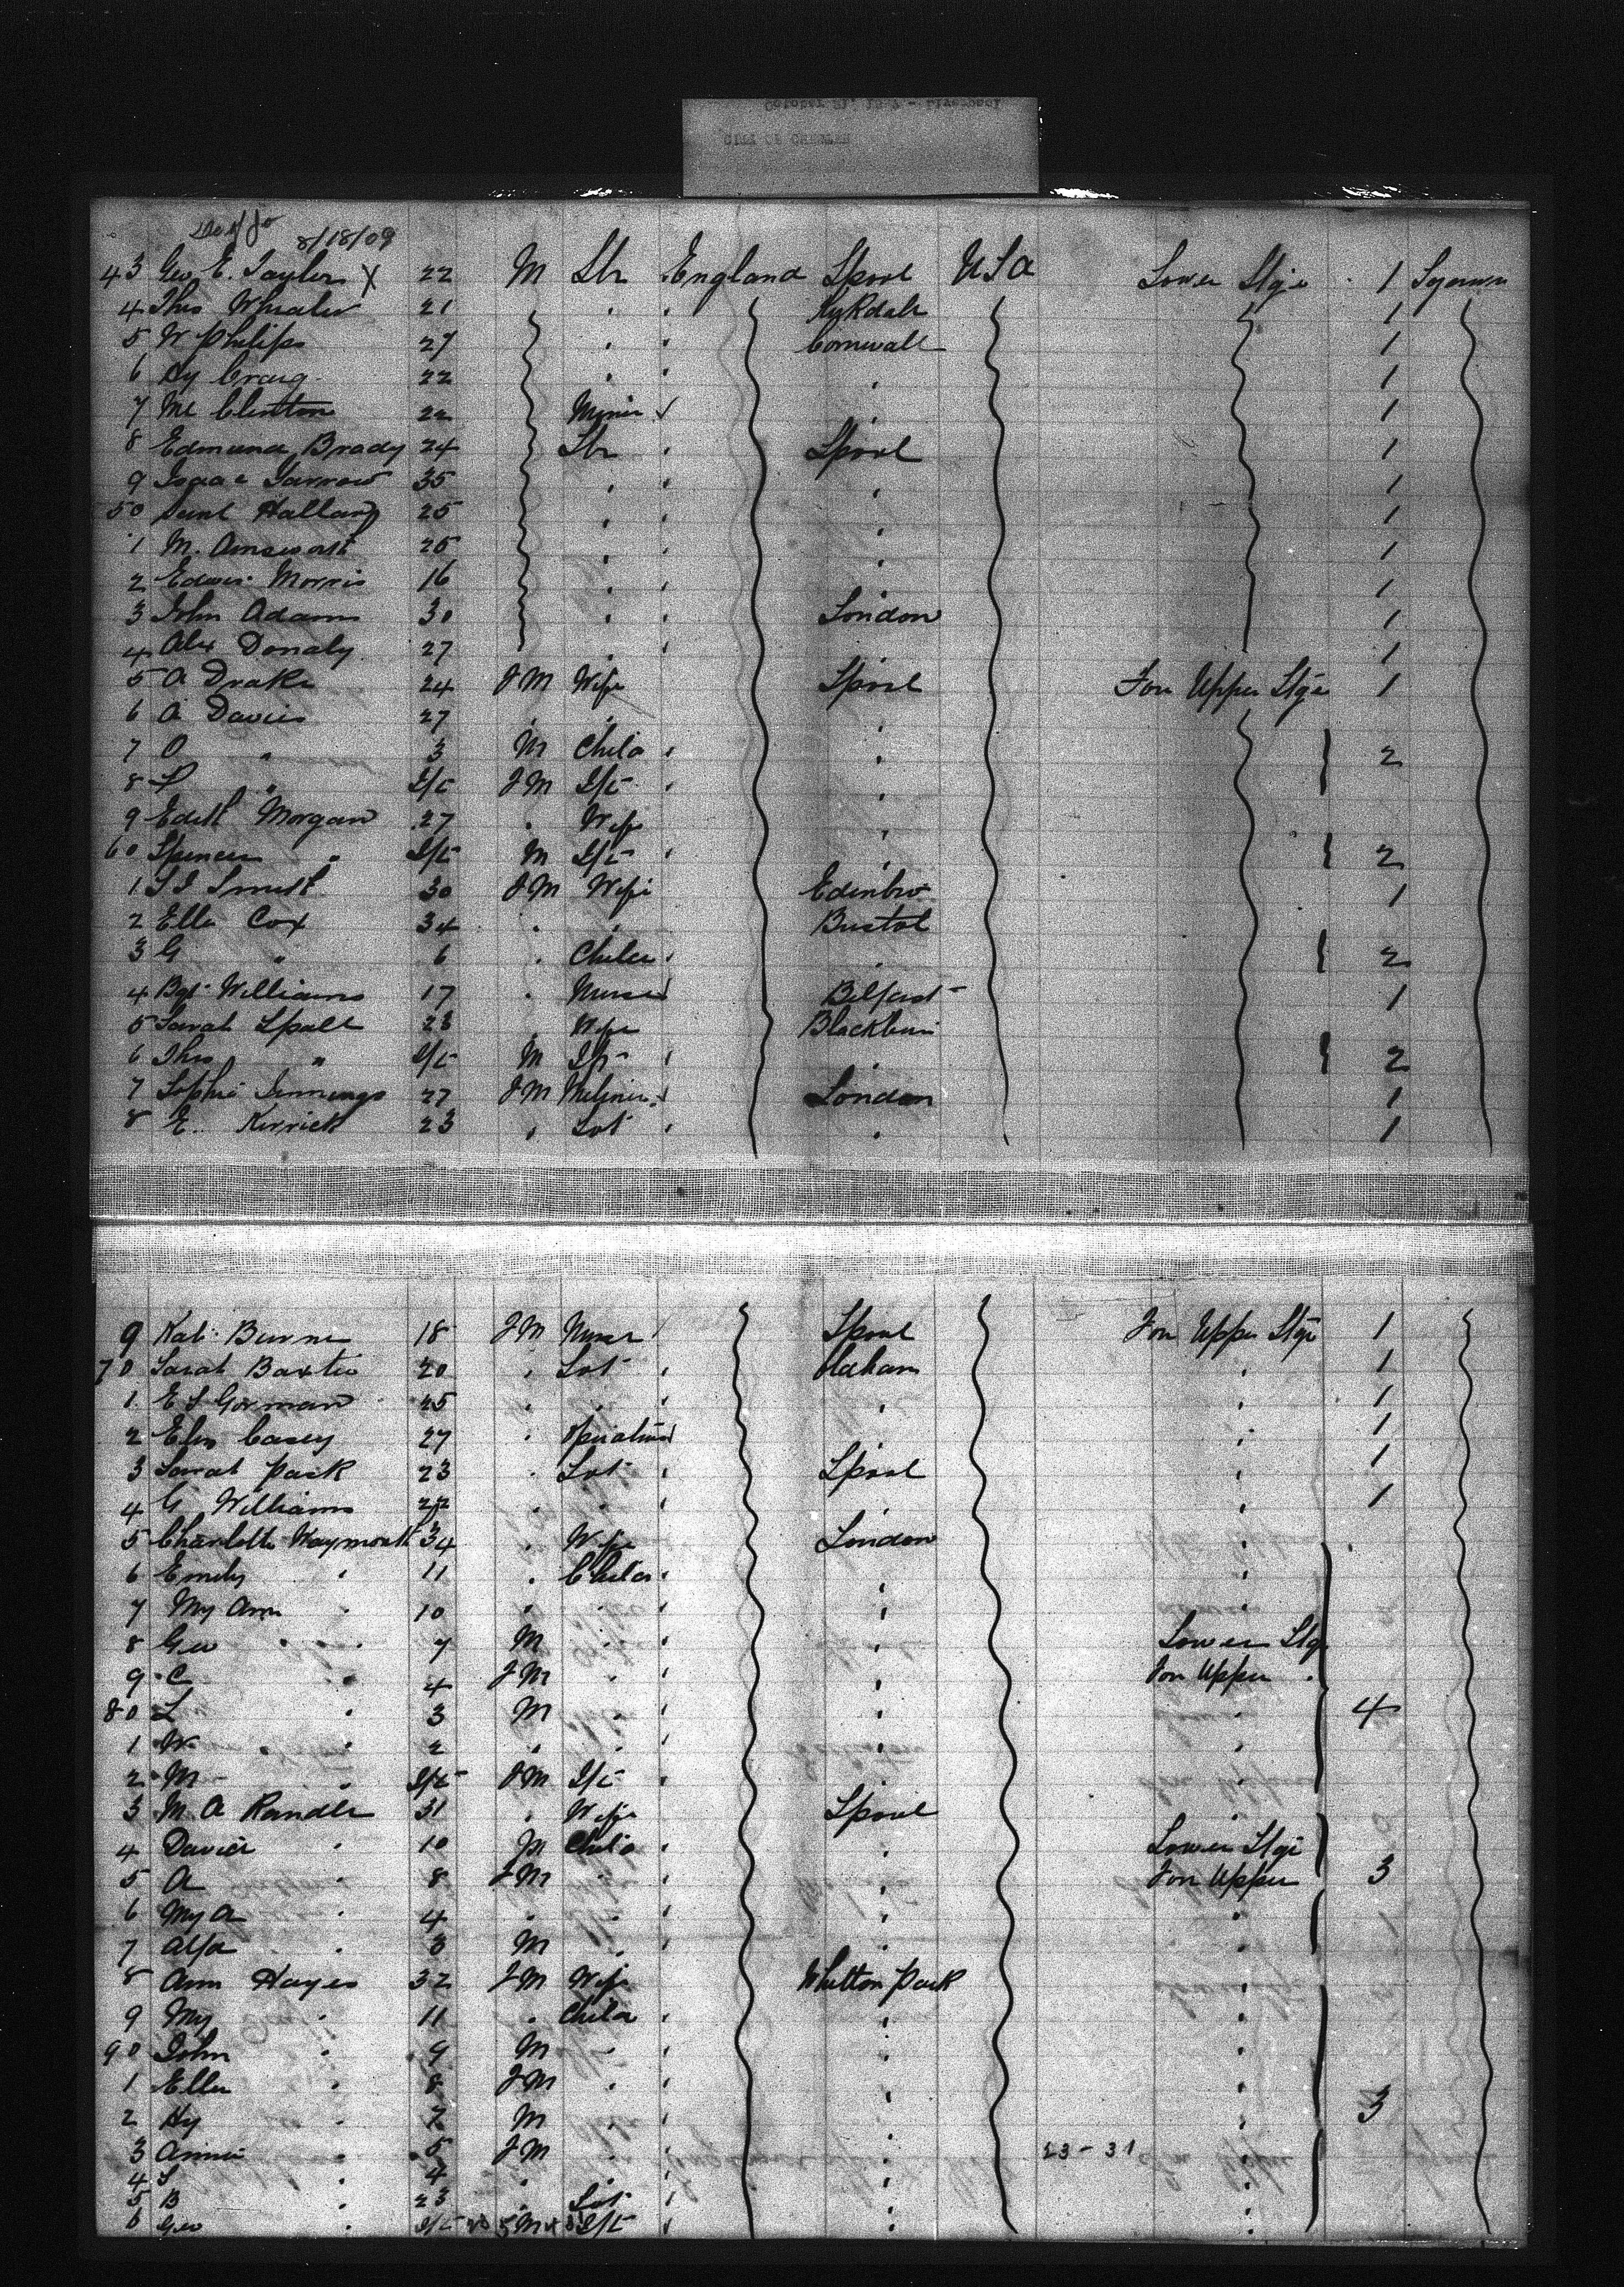 October 21, 1887 - Liverpool
CITY OF CHESTER
8/18/09
43 Geo E. Taylor X 22 M Lbr England Lpool USA Lower Stge 1 Sojourn
4 Thos 21 1
5 W Philips 27 Cornwall 1
6 Hy Craig 22 1
7 Clinton 22 Miner 1
8 Edmund Brady 24 Lbr Lpool 1
9 Isaac 35 1
50 Saml 25 1
1 M. 25 1
2 Edwin Morris 16 1
3 John Adams 30 London 1
4 Alex Donaly 27 1
5 A Drake 24 FM Wife Lpool For Upper Stge 1
6 A Davies 27
7 O " 3 M Child 2
8 " Inft FM Inft
9 Edith Morgan 27 Wife
60 Spencer " Inft M Inft 2
1 Smith 30 FM Wife Edinbro 1
2 Ellen Cox 34 Bristol
3 G " 6 Child 2
4 Bgt Williams 17 Nurse Belfast 1
5 Sarah Spall 23 Wife Blackburn
6 Thos " Inft M Inft 2
7 Sophie Jennings 27 FM Milliner London 1
8 E. Kerrick 23 1
9 Kate Burns 18 FM Nurse Lpool For Upper Stge 1
70 Sarah Baxter 20 Oldham 1
1 E S Gorman 25 1
2 Elen Casey 27 Operative 1
3 Sarah Park 23 Lpool 1
4 G Williams 22 1
5 Charlotte Waymouth 34 Wife London
6 Emily " 11 Child
7 My Ann " 10
8 Geo " 7 M Lower Stge
9 C " 4 FM For Upper
80 L " 3 M 4
1 W " 2
2 M " Inft FM Inft
3 M. A Randle 31 Wife Lpool
4 David " 10 M Child Lower Stge
5 A " 8 FM For Upper 3
6 My A " 4
7 Alfd " 3 M
8 Ann Hayes 32 FM Wife Whitton Park
9 My " 11 Child
90 John " 9 M
1 Ellen " 8 FM
2 Hy " 7 M 3
3 Annie " 5 FM 23-31
4 " 4
5 B " 23
6 Geo " Inft M Inft